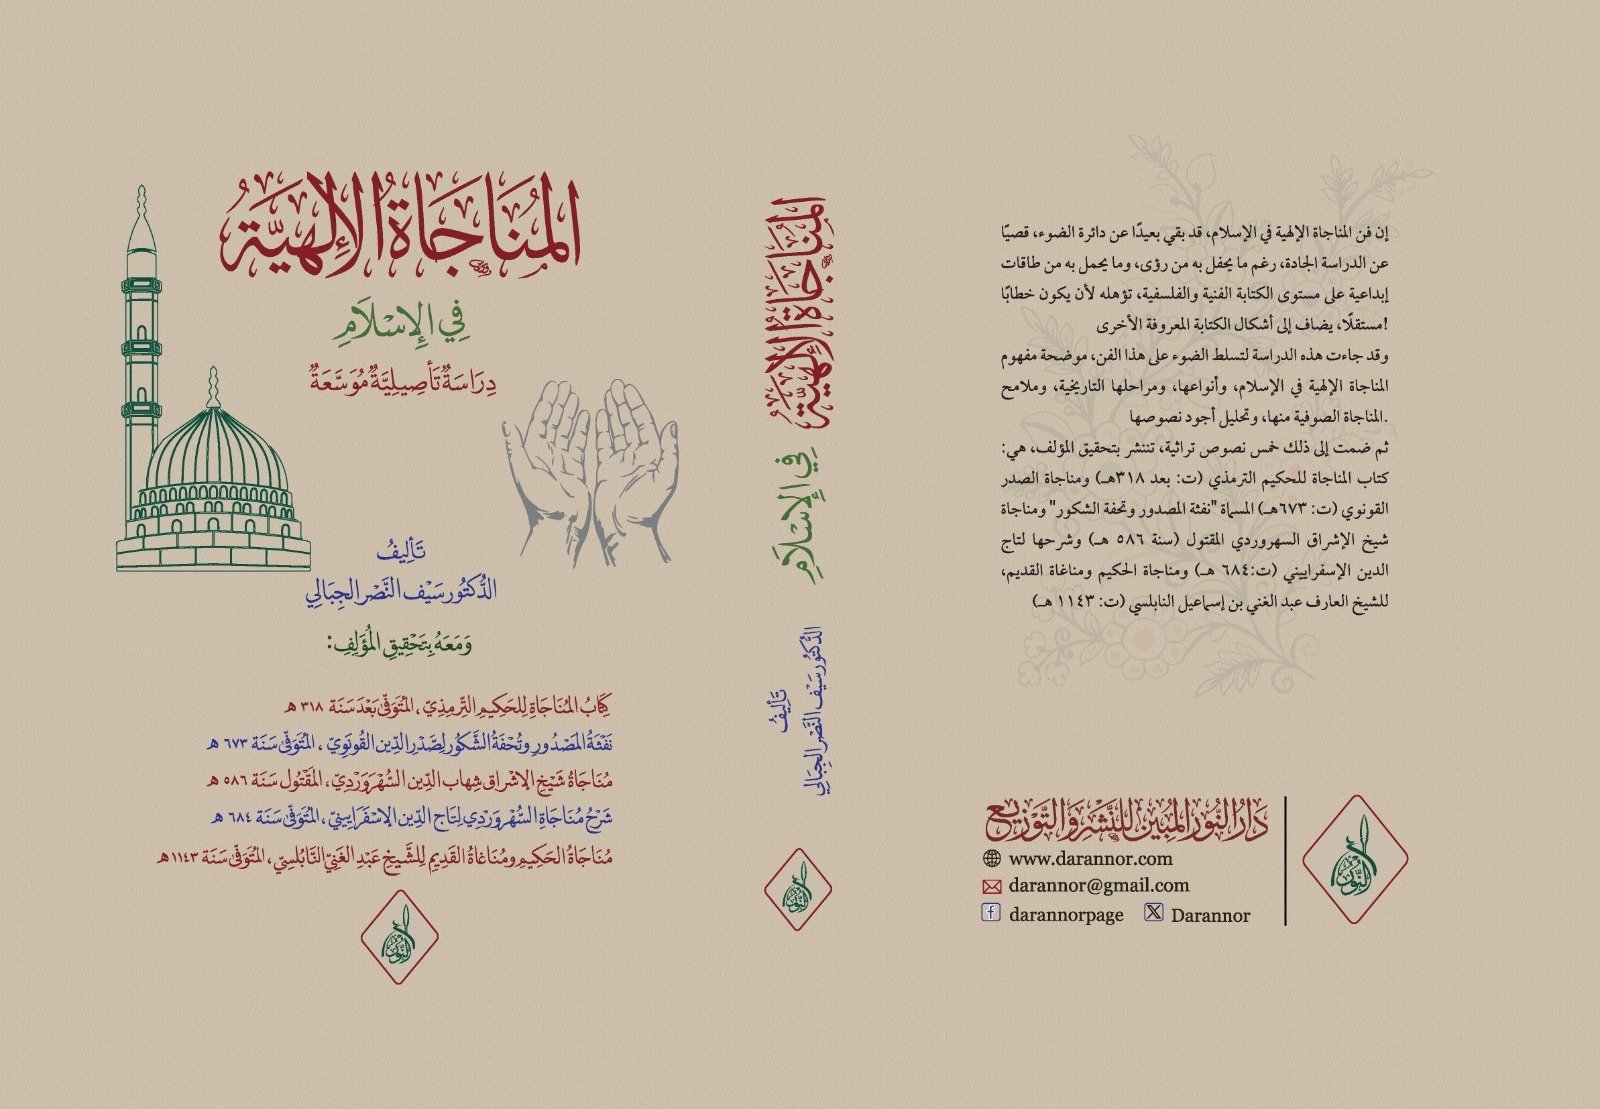 المُنَاجَاةُ الإِلهِيَّةُ
فِي الإِسْلَامِ
دِرَاسَةٌ تَأْصِيلِيَّةٌ مُوَسَّعَةٌ
تَأْلِيفُ
الدُّكتُور سَيْف النَّصْر الجِبَالِي
وَمَعَهُ بِتَحْقِيقِ المُؤَلِفِ:
كِتَابُ المُنَاجَاةِ لِلحَكِيمِ التِّرمِذِيّ، المُتَوَفَّى بَعْدَ سَنَة ٣١٨ هـ
نَفْثَةُ المَصْدُورِ وتُحْفَةُ الشَّكُورِ لِصَدْرِ الدِّين القُونَوِيّ، المُتَوَفَّى سَنَة ٦٧٣ هـ
مُنَاجَاةُ شَيْخِ الإشْرَاق شِهاب الدِّين السُّهْرَوَرْدِيّ، المَقْتُول سَنَة ٥٨٦ هـ
شَرْحُ مُنَاجَاةِ السُّهْرَوَرْدِي لِتَاج الدِّين الإِسْفَرَايِينِيّ، المُتَوَفَّى سَنَة ٦٨٤ هـ
مُنَاجَاةُ الحَكِيمِ ومُنَاغَاةُ القَدِيمِ لِلشَّيخِ عَبْدِ الغَنِيّ النَّابُلسِيّ، المُتَوَفَّى سَنَة ١١٤٣ هـ
النُّور
المُنَاجَاةُ الإِلهِيَّةُ
فِي الإِسْلَامِ
تَأْلِيفُ
الدُّكتُور سَيْف النَّصْر الجِبَالِي
النُّور
إن فن المناجاة الإلهية في الإسلام، قد بقي بعيدًا عن دائرة الضوء، قصيًا
عن الدراسة الجادة، رغم ما يحفل به من رؤى، وما يحمل به من طاقات
إبداعية على مستوى الكتابة الفنية والفلسفية، تؤهله لأن يكون خطابًا
!مستقلًا، يضاف إلى أشكال الكتابة المعروفة الأخرى
وقد جاءت هذه الدراسة لتسلط الضوء على هذا الفن، موضحة مفهوم
المناجاة الإلهية في الإسلام، وأنواعها، ومراحلها التاريخية، وملامح
.المناجاة الصوفية منها، وتحليل أجود نصوصها
ثم ضمت إلى ذلك خمس نصوص تراثية، تنشر بتحقيق المؤلف، هي:
كتاب المناجاة للحكيم الترمذي (ت: بعد ٣١٨هـ) ومناجاة الصدر
القونوي (ت: ٦٧٣هـ) المسماة "نفثة المصدور وتحفة الشكور" ومناجاة
شيخ الإشراق السهروردي المقتول (سنة ٥٨٦ هـ) وشرحها لتاج
الدين الإسفراييني (ت:٦٨٤ هـ) ومناجاة الحكيم ومناغاة القديم،
للشيخ العارف عبد الغني بن إسماعيل النابلسي (ت: ١١٤٣ هـ)
دَارُ النُّورِ المُبِين لِلنَّشْرِ وَالتَّوْزِيع
www.darannor.com
darannor@gmail.com
darannorpage
Darannor
النُّور